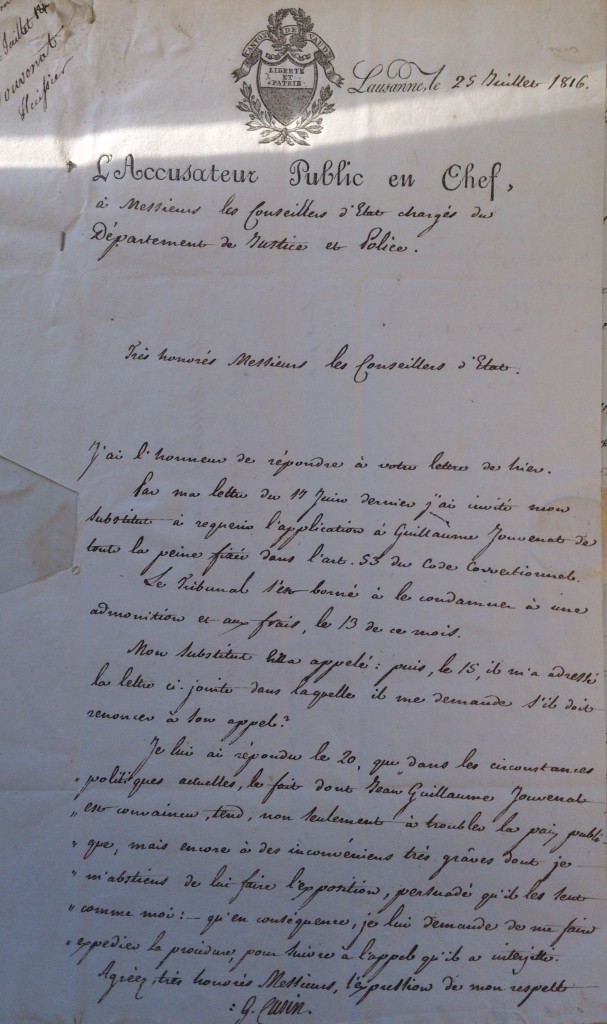 Juillet 18
Jouvenat
Huissier
CANTON DE VAUD
LIBERTÉ
ET
PATRIE
Lausanne, le 25 Juillet 1816.
L'Accusateur Public en Chef,
à Messieurs les Conseillers d'Etat chargés du
Département de Justice et Police.
Très honorés Messieurs les Conseillers d'Etat.
J'ai l'honneur de répondre à votre lettre de hier.
Par ma lettre du 17 Juin dernier j'ai invité mon
substitut à requerir l'application à Guillaume Jouvenat de
tout la peine fixée dans l'art. 53 du Code Correctionnel.
Le Tribunal s'est borné à le condamner à une
admonition et aux frais, le 13 de ce mois.
Mon substitut en a appelé : puis, le 15, il m'a adressé
la lettre ci-jointe dans laquelle il me demande s'il doit
renoncer à son appel?
Je lui ai répondu le 20, que dans les circonstances
" politiques actuelles, le fait dont Jean Guillaume Jouvenat
" est convaincu, tend, non seulement à troubler la paix publi-
" que, mais encore à des inconvéniens très grâves dont je
" m'abstiens de lui faire l'exposition, persuadé qu'il les sent
" comme moi : – qu'en conséquence, je lui demande de me faire
" expedier la procédure, pour suivre à l'appel qu'il a interjetté.
Agréez, très honorés Messieurs, l'expression de mon respect
: G. Cusin.